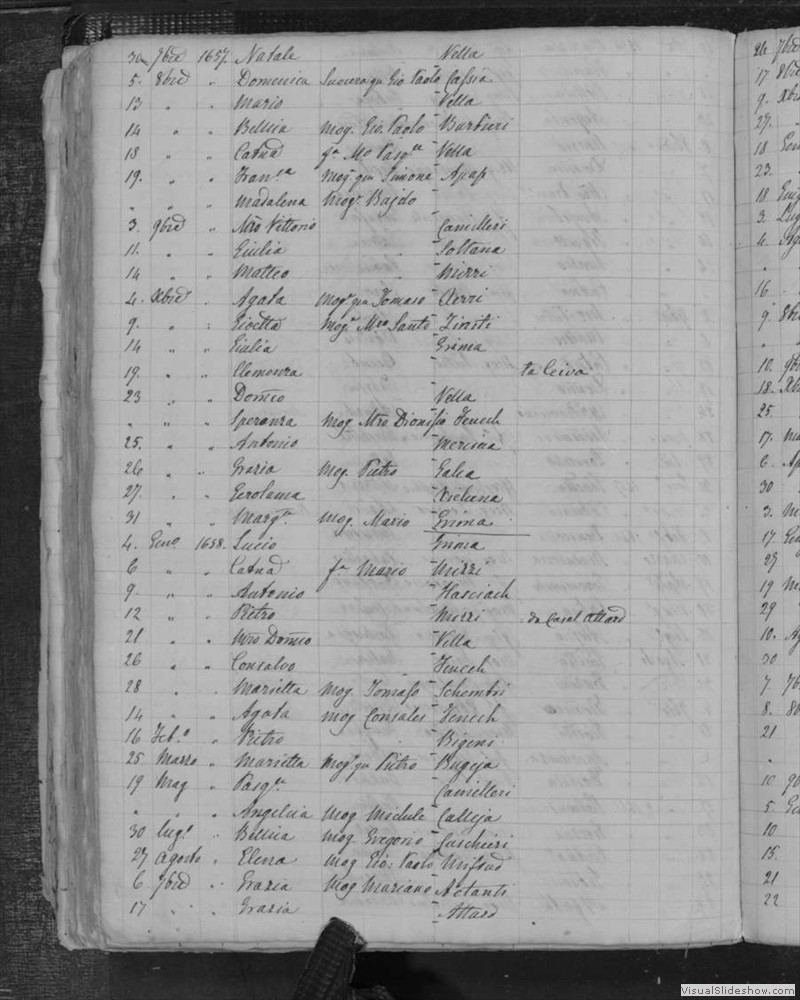 30 7bre 1657. Natale Vella
5. 8bre " Domenica Suocera qm Gio Paolo Cassia
13 " " Mario Vella
14 " " Bellia mog. Gio. Paolo Barbieri
18 " " Catna fa Mo Pasqle Vella
19. " " Franca mog qm Simone Apap
" " " Madalena mog. Bajdo
3. 9bre " Mro Vittorio Camilleri
11. " " Giulia Soltana
14 " " Matteo Mizzi
4. Xbre " Agata mog. qm Tomaso Xerri
9. " " mog. Mro Santo
14 " " Giulia Grima
19. " " Clemenza ta Ceiva
23 " " Domco Vella
" " " Speranza mog Mro Dionisio Fenech
25. " " Antonio
26 " " Grazia mog. Pietro Galea
27. " " Gerolama
31 " " Margta mog. Mario Grima
4. Geno 1658. Lucio Grima
6 " " Catna fa Mario Mizzi
9. " " Antonio Hasciach
12 " " Pietro Mizzi da Casal Attard
21 " " Mro Domco Vella
26 " " Consalvo Fenech
28 " " Marietta mog. Tomaso Schembri
14 " " Agata mog Consales Fenech
16 Feb.o " Pietro Bigeni
25 Marzo " Marietta mog. qm Pietro Bugeja
19 Mag " Pasqle Camilleri
" " " Angelica mog Michele Calleja
30 lug.o " Bellia mog Gregorio
27 Agosto " Elena mog Gio: Paolo Mifsud
6 7bre " Grazia mog Mariano Actanti
17 " " Grazia Attard
VisualSlideshow.com